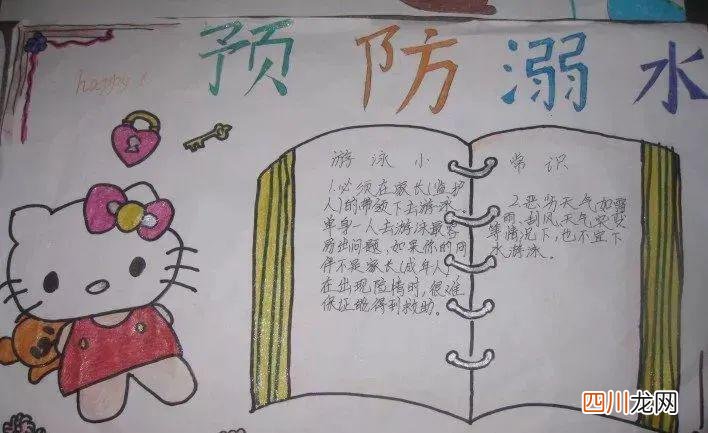 预防溺水
happy
游泳小常识
1.必须在家长(监护
人)的带领下去游泳。
单身一人去游泳最容
易出问题,如果你的同
伴不是家长(成年人)
在出现险情时,很难
保证能得到救助。
2.恶劣天气,如雷
雨、刮风、天气突变
等情况下,也不宜下
水游泳。
四川龙网